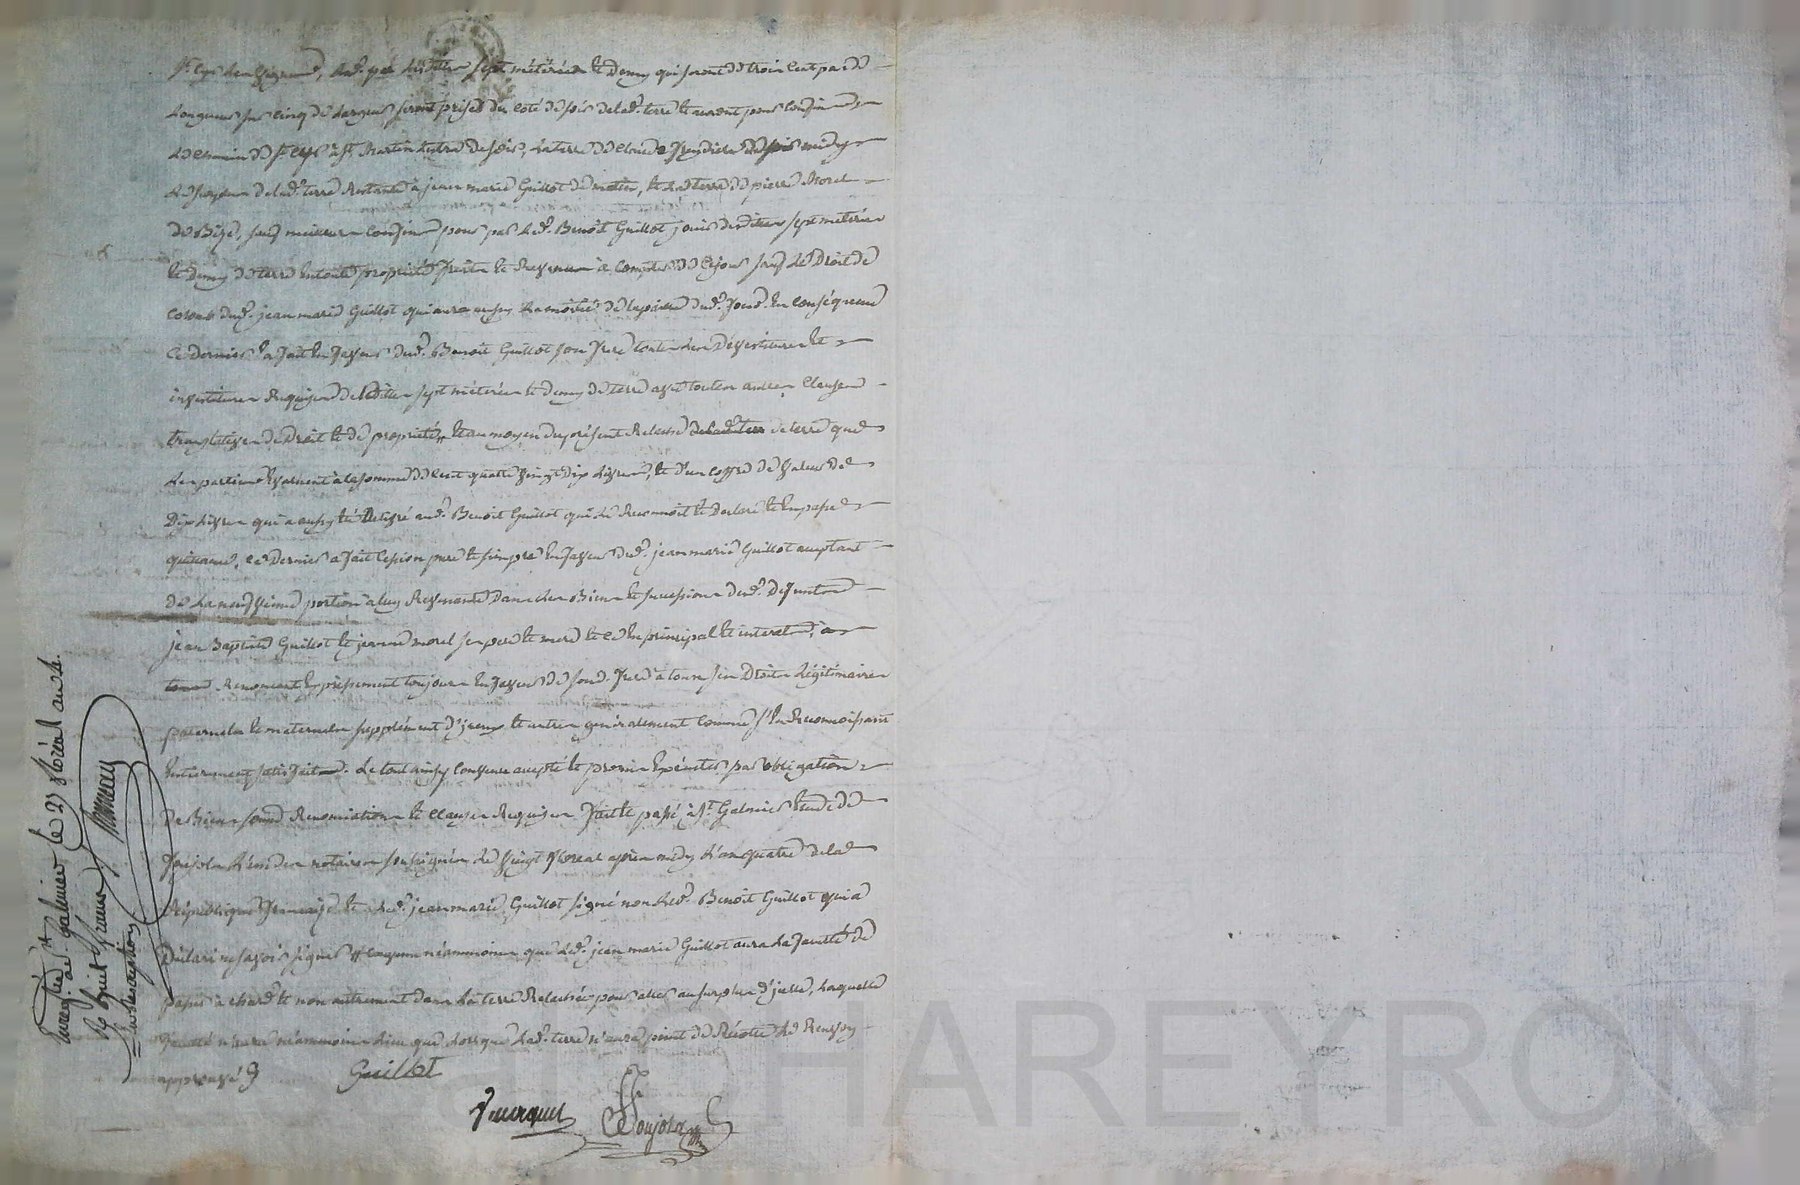 St Cyr les Vignes, lesd. sept méterées et demy qui seront de trois cent pas de
longueur sur cinq de largeur seront prises du coté de soir de lad. terre et auront pour confins
le chemin de St Cyr à St Martin Lestra de soir, la terre de Claude de midy
le surplus de lad. terre restante à jean marie Guillot de matin, et la terre de pierre Morel
de Bize, sauf meilleurs confins pour par led. Benoît Guillot jouir desdites sept méterées
et demy de terre en toute propriété fruits et revenus à compter de ce jour sauf le Droit de
dud. jean marie Guillot qui aura aussy la moitié de la paille dud. fond. En conséquence
ce dernier a fait en faveur dud. Benoit Guillot son frere toutes les Dévestitures et
investitures requises desdites sept méterées et demy de terre avec toutes autres clauses
translatives de Droit et de propriété, et au moyen du présent relaché de terre que
les parties évaluent à la somme de cent quatre vingt dix livres, et d'un coffre de valeur de
Dix livres qui a aussy été délivré aud. Benoit Guillot qui le reconnoit et Declare et en passe
quittance, ce dernier a fait cession pure et simple en faveur dud. jean marie Guillot acceptant
de la neufvieme portion à luy revenante dans les Biens et successions desd. defuntes
jean Baptiste Guillot et jeanne morel ses pere et mere et ce en principal et interets,
renoncant expressement toujours en faveur de sond. frere à tous ses Droits légitimaires
paternels et maternels supplément d'yceux et autres généralement comme s'en reconnoissant
entierement satisfait. Le tout ainsy convenu accepté et promis executer par obligation
de Biens soumis Renonciations et clauses requises fait et passé à St Galmier etude de
Poujola l'un des notaires soussignés le vingt floreal après midy l'an quatre de la
République française et a led. jean marie Guillot signé non led. Benoit Guillot qui a
Déclaré ne savoir signer convenu néammoins que led. jean marie Guillot aura la faculté de
passer à chard et non autrement dans la terre relachée pour aller au surplus d'ycelle, laquelle
faculté n'aura néammoins lieu que lorsque lad. terre n'aura point de Récolte
approuvé
Guillot
Poujola
Enregtré à St galmier le 27 floréal an 4.
Re huit francs
en